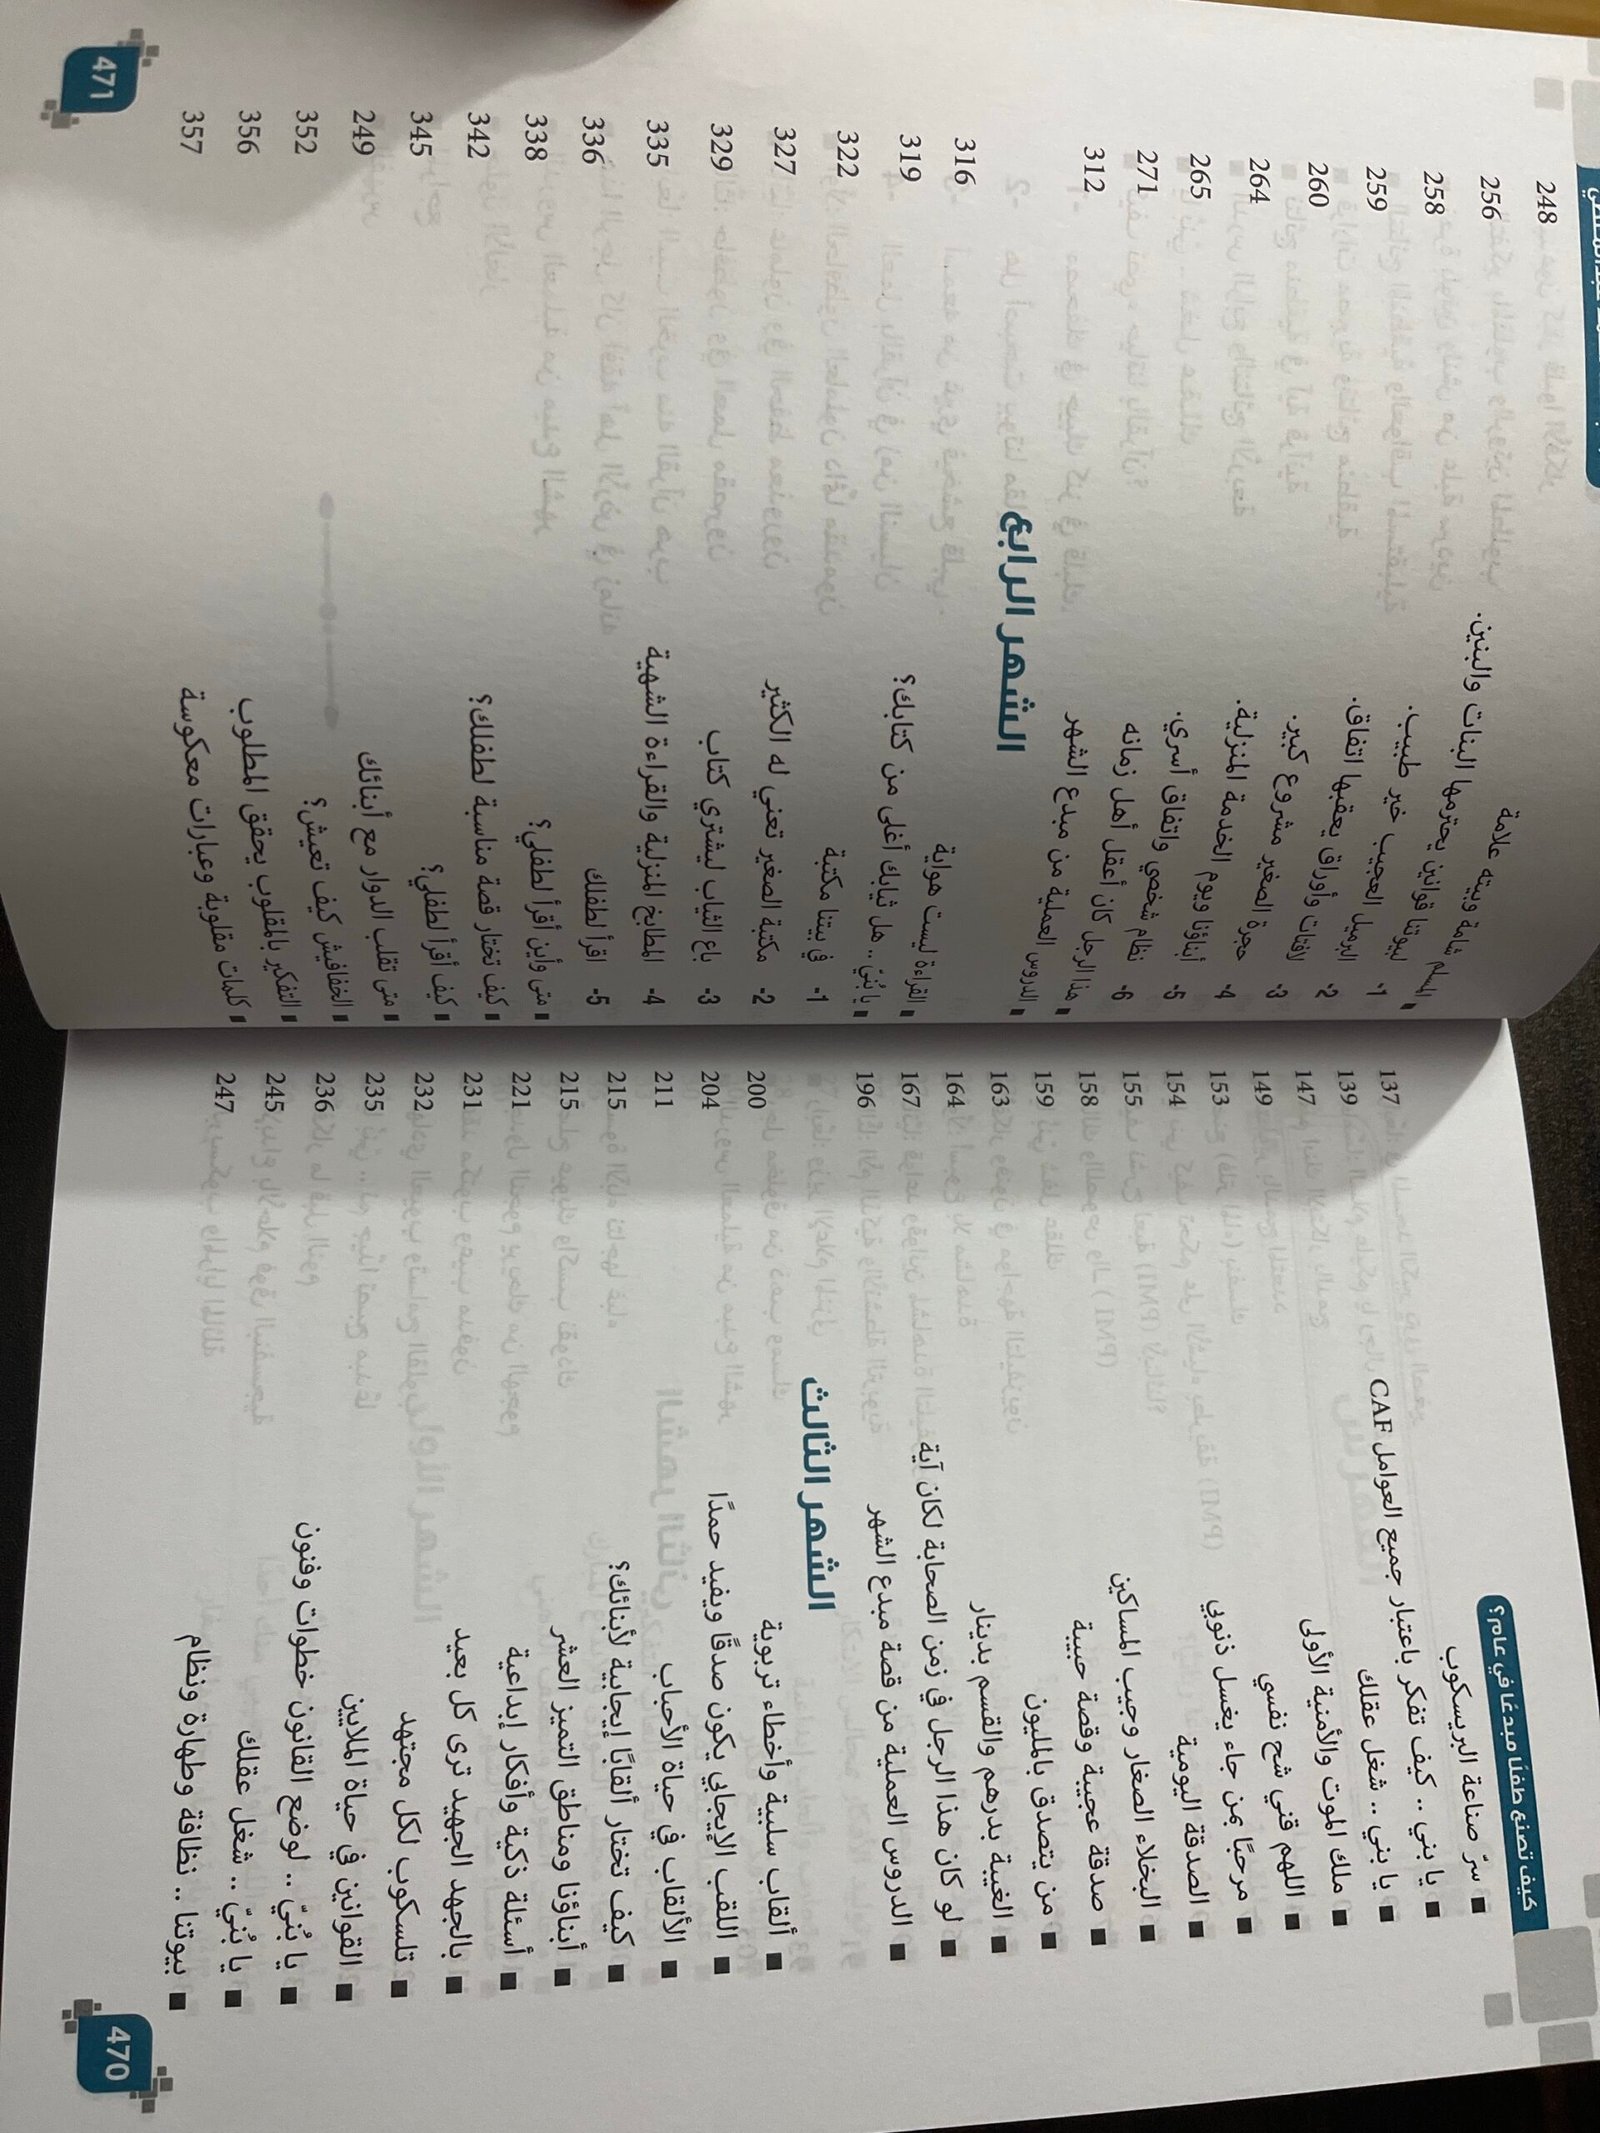 كيف تصنع طفلًا مبدعًا في عام؟
■ سرّ صناعة البريسكوب 137
■ يا بني .. كيف تفكر باعتبار جميع العوامل CAF 139
■ يا بني .. شغل عقلك 147
■ ملك الموت والأمنية الأولى 149
■ اللهم قني شح نفسي 153
■ مرحبًا بمن جاء يغسل ذنوبي 154
■ الصدقة اليومية 155
■ البخلاء الصغار وجيب المساكين 158
■ صدقة عجيبة وقصة حبيبة 159
■ من يتصدق بالمليون 163
■ الغيبة بدرهم والقسم بدينار 164
■ لو كان هذا الرجل في زمن الصحابة لكان آية 167
■ الدروس العملية من قصة مبدع الشهر 196
الشهر الثالث
■ ألقاب سلبية وأخطاء تربوية 200
■ اللقب الإيجابي يكون صدقًا ويفيد حمدًا 204
■ الألقاب في حياة الأحباب 211
■ كيف تختار ألقابًا إيجابية لأبنائك؟ 215
■ أبناؤنا ومناطق التميز العشر 215
■ أسئلة ذكية وأفكار إبداعية 221
■ بالجهد الجهيد ترى كل بعيد 231
■ تلسكوب لكل مجتهد 232
■ القوانين في حياة الملايين 235
■ يا بُنيّ .. لوضع القانون خطوات وفنون 236
■ يا بُنيّ .. شغل عقلك 245
■ بيوتنا .. نظافة وطهارة ونظام 247
470
■ المسلم شامة وبيته علامة 248
1- لبيوتنا قوانين يحترمها البنات والبنين. 256
2- البرميل العجيب خير طبيب. 258
3- لافتات وأوراق يعقبها اتفاق. 259
4- حجرة الصغير مشروع كبير. 260
5- أبناؤنا ويوم الخدمة المنزلية. 264
6- نظام شخصي واتفاق أسري. 265
■ هذا الرجل كان أعقل أهل زمانه 271
■ الدروس العملية من مبدع الشهر 312
الشهر الرابع
■ القراءة ليست هواية 316
■ يا بُنيّ .. هل ثيابك أغلى من كتابك؟ 319
1- في بيتنا مكتبة 322
2- مكتبة الصغير تعني له الكثير 327
3- باع الثياب ليشتري كتاب 329
4- المطابخ المنزلية والقراءة الشهية 335
5- اقرأ لطفلك 336
■ متى وأين أقرأ لطفلي؟ 338
■ كيف تختار قصة مناسبة لطفلك؟ 342
■ كيف أقرأ لطفلي؟ 345
■ متى تقلب الدوار مع أبنائك 249
■ الخفافيش كيف تعيش؟ 352
■ التفكير بالمقلوب يحقق المطلوب 356
■ كلمات مقلوبة وعبارات معكوسة 357
471